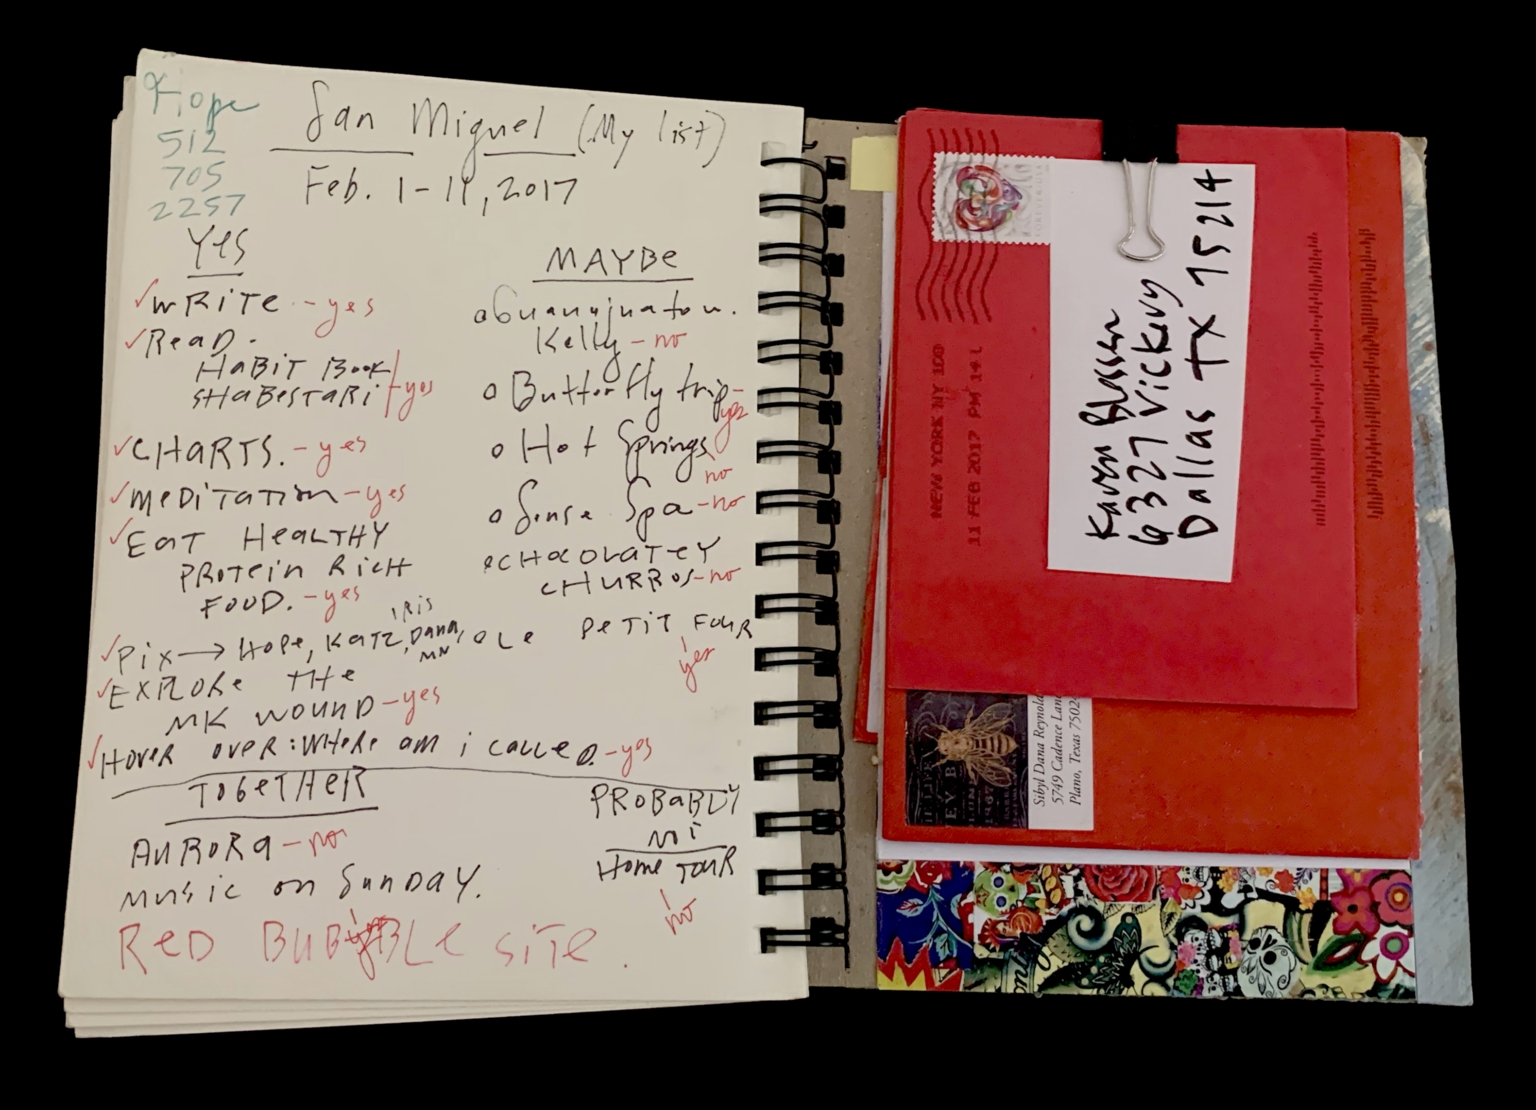 Hope
512
705
2257
San Miguel (My list)
Feb. 1-11, 2017
YES
✓WRITE - yes
✓READ.
HABIT BOOK
SHABESTARI - yes
✓CHARTS. - yes
✓MEDITATION - yes
✓EAT HEALTHY
PROTEIN RICH
FOOD. - yes
IRIS
✓PIX → HOPE, KATZ, DANA,
MN
✓EXPLORE THE
MK WOUND - yes
✓HOVER OVER: WHERE AM I CALLED. - yes
MAYBE
o Guanajuato.
Kelly - no
o Butterfly trip - yes
o Hot Springs
no
o Sense Spa - no
CHOCOLATEY
CHURROS - no
OLE PETIT FOUR
yes
TOGETHER
AURORA - no
MUSIC ON SUNDAY.
RED BUBBLE SITE.
PROBABLY
NOT
HOME TOUR
no
FOREVER
NEW YORK NY 100
11 FEB 2017 PM 14 L
Karen Blessen
6327 Vickery
Dallas TX 75214
Sibyl Dana Reynold
5749 Cadence Lan
Plano, Texas 7502